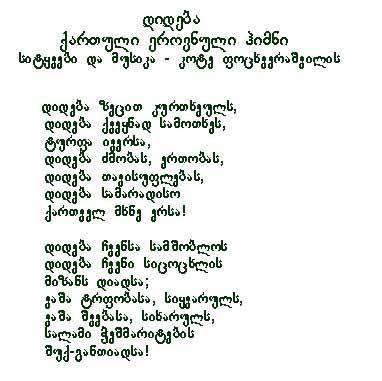 დიდება
ქართული ეროვნული ჰიმნი
სიტყვები და მუსიკა - კოტე ფოცხვერაშვილის
დიდება ზეცით კურთხეულს,
დიდება ქვეყნად სამოთხეს,
ტურფა ივერსა,
დიდება ძმობას, ერთობას,
დიდება თავისუფლებას,
დიდება სამარადისო
ქართველ მხნე ერსა!
დიდება ჩვენსა სამშობლოს
დიდება ჩვენი სიცოცხლის
მიზანს დიადსა;
ვაშა ტრფობასა, სიყვარულს,
ვაშა შვებასა, სიხარულს,
სალამი ჭეშმარიტების
შუქ-განთიადსა!